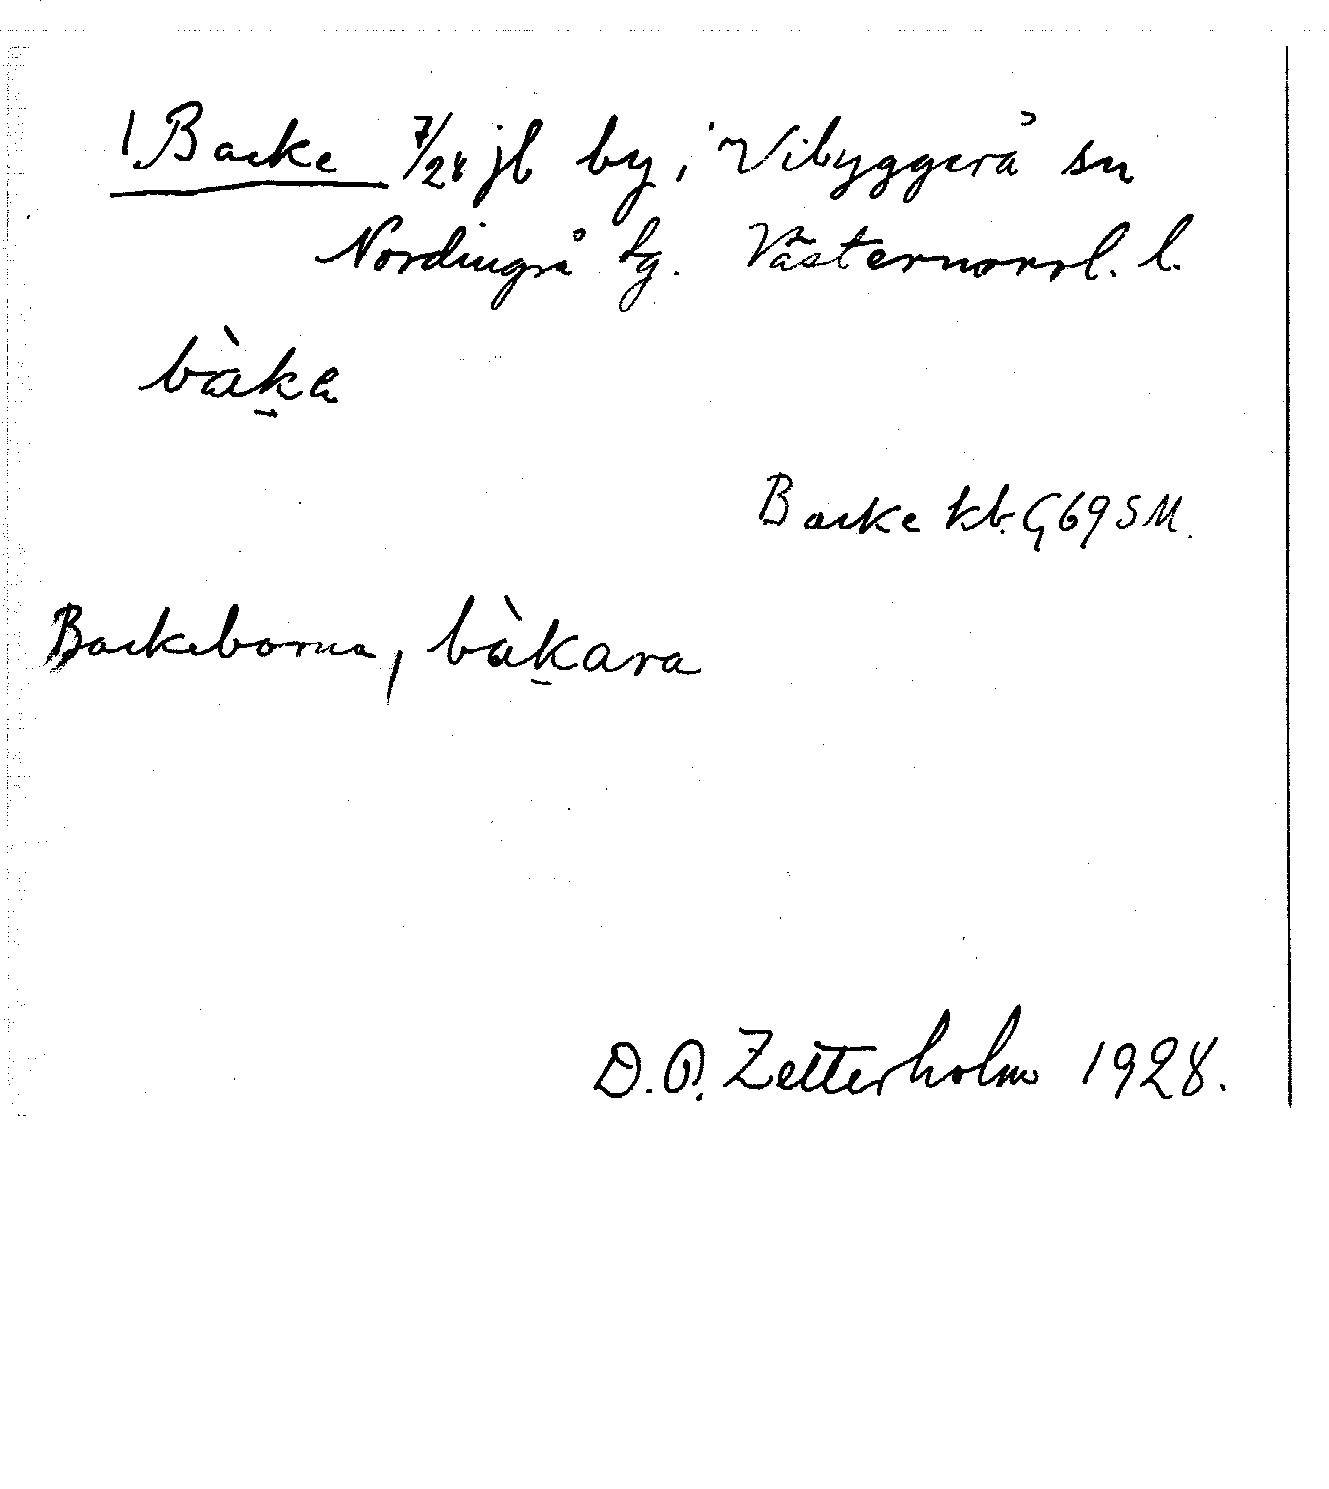 1. Backe 7/24 jb by i Vibyggerå sn
Nordingrå tg. Västernorrl. l.
bàk̠a
Backe kb. G69SM.
Backeborna, bàk̠ara
D.O. Zetterholm 1928.